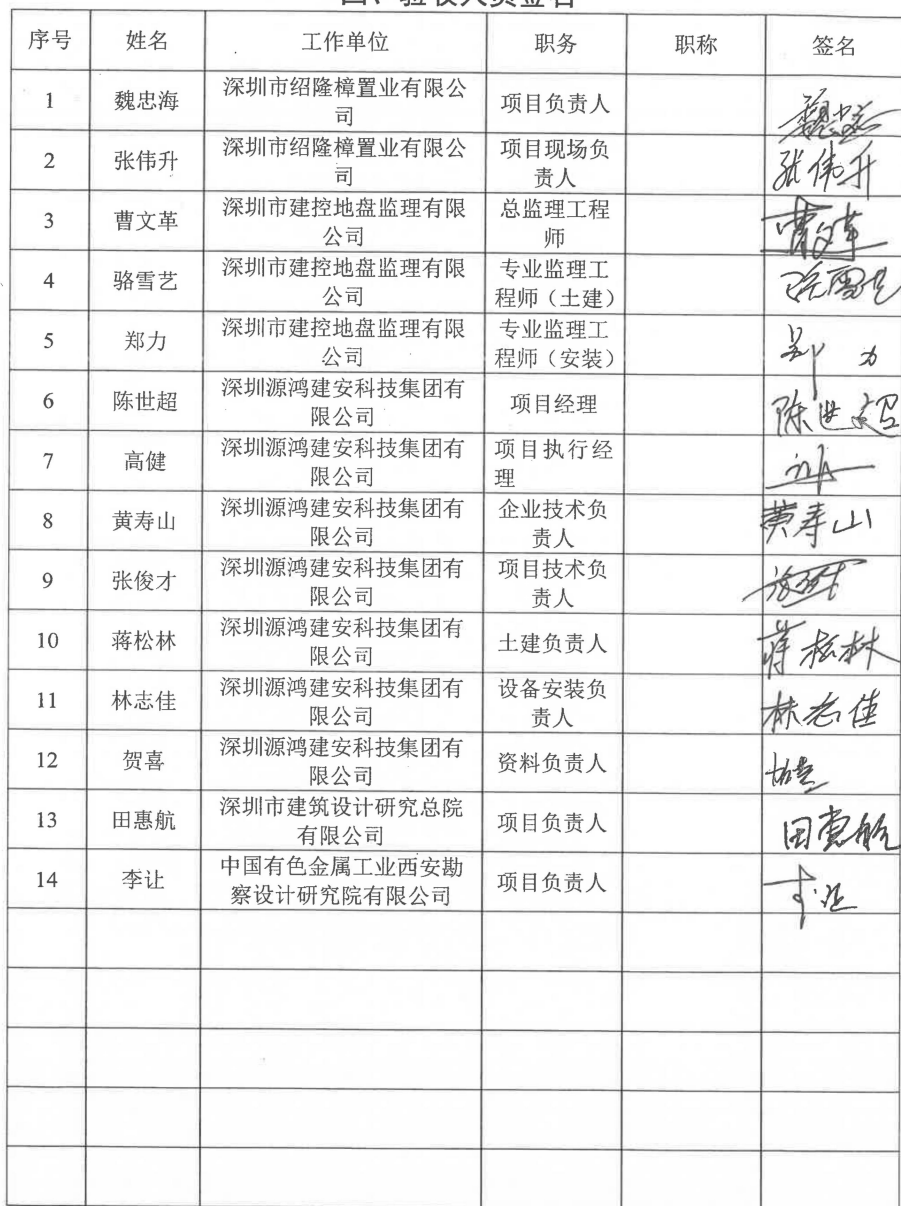 四、验收人员签名
序号 姓名 工作单位 职务 职称 签名
1 魏忠海 深圳市绍隆樟置业有限公
司 项目负责人 魏忠海
2 张伟升 深圳市绍隆樟置业有限公
司 项目现场负
责人 张伟升
3 曹文革 深圳市建控地盘监理有限
公司 总监理工程
师 曹文革
4 骆雪艺 深圳市建控地盘监理有限
公司 专业监理工
程师（土建） 骆雪艺
5 郑力 深圳市建控地盘监理有限
公司 专业监理工
程师（安装） 郑力
6 陈世超 深圳源鸿建安科技集团有
限公司 项目经理 陈世超
7 高健 深圳源鸿建安科技集团有
限公司 项目执行经
理
8 黄寿山 深圳源鸿建安科技集团有
限公司 企业技术负
责人 黄寿山
9 张俊才 深圳源鸿建安科技集团有
限公司 项目技术负
责人
10 蒋松林 深圳源鸿建安科技集团有
限公司 土建负责人 蒋松林
11 林志佳 深圳源鸿建安科技集团有
限公司 设备安装负
责人 林志佳
12 贺喜 深圳源鸿建安科技集团有
限公司 资料负责人 贺喜
13 田惠航 深圳市建筑设计研究总院
有限公司 项目负责人 田惠航
14 李让 中国有色金属工业西安勘
察设计研究院有限公司 项目负责人 李让